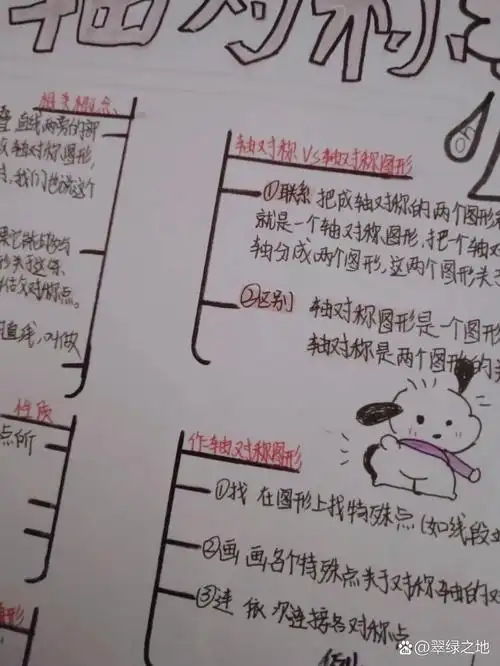 轴对称
相关概念
直线两旁的部
轴对称图形,
我们也说这个
形关于这条
对称点.
直线,叫做
性质
点所
轴对称 VS 轴对称图形
①联系 把成轴对称的两个图形
就是一个轴对称图形,把一个轴对
轴分成两个图形,这两个图形关于
②区别 轴对称图形是一个图形
轴对称是两个图形的
作轴对称图形
①找 在图形上找特殊点(如线段
②画 画各个特殊点关于对称轴的对
③连 依次连接各对称点
形
例
百度 @翠绿之地